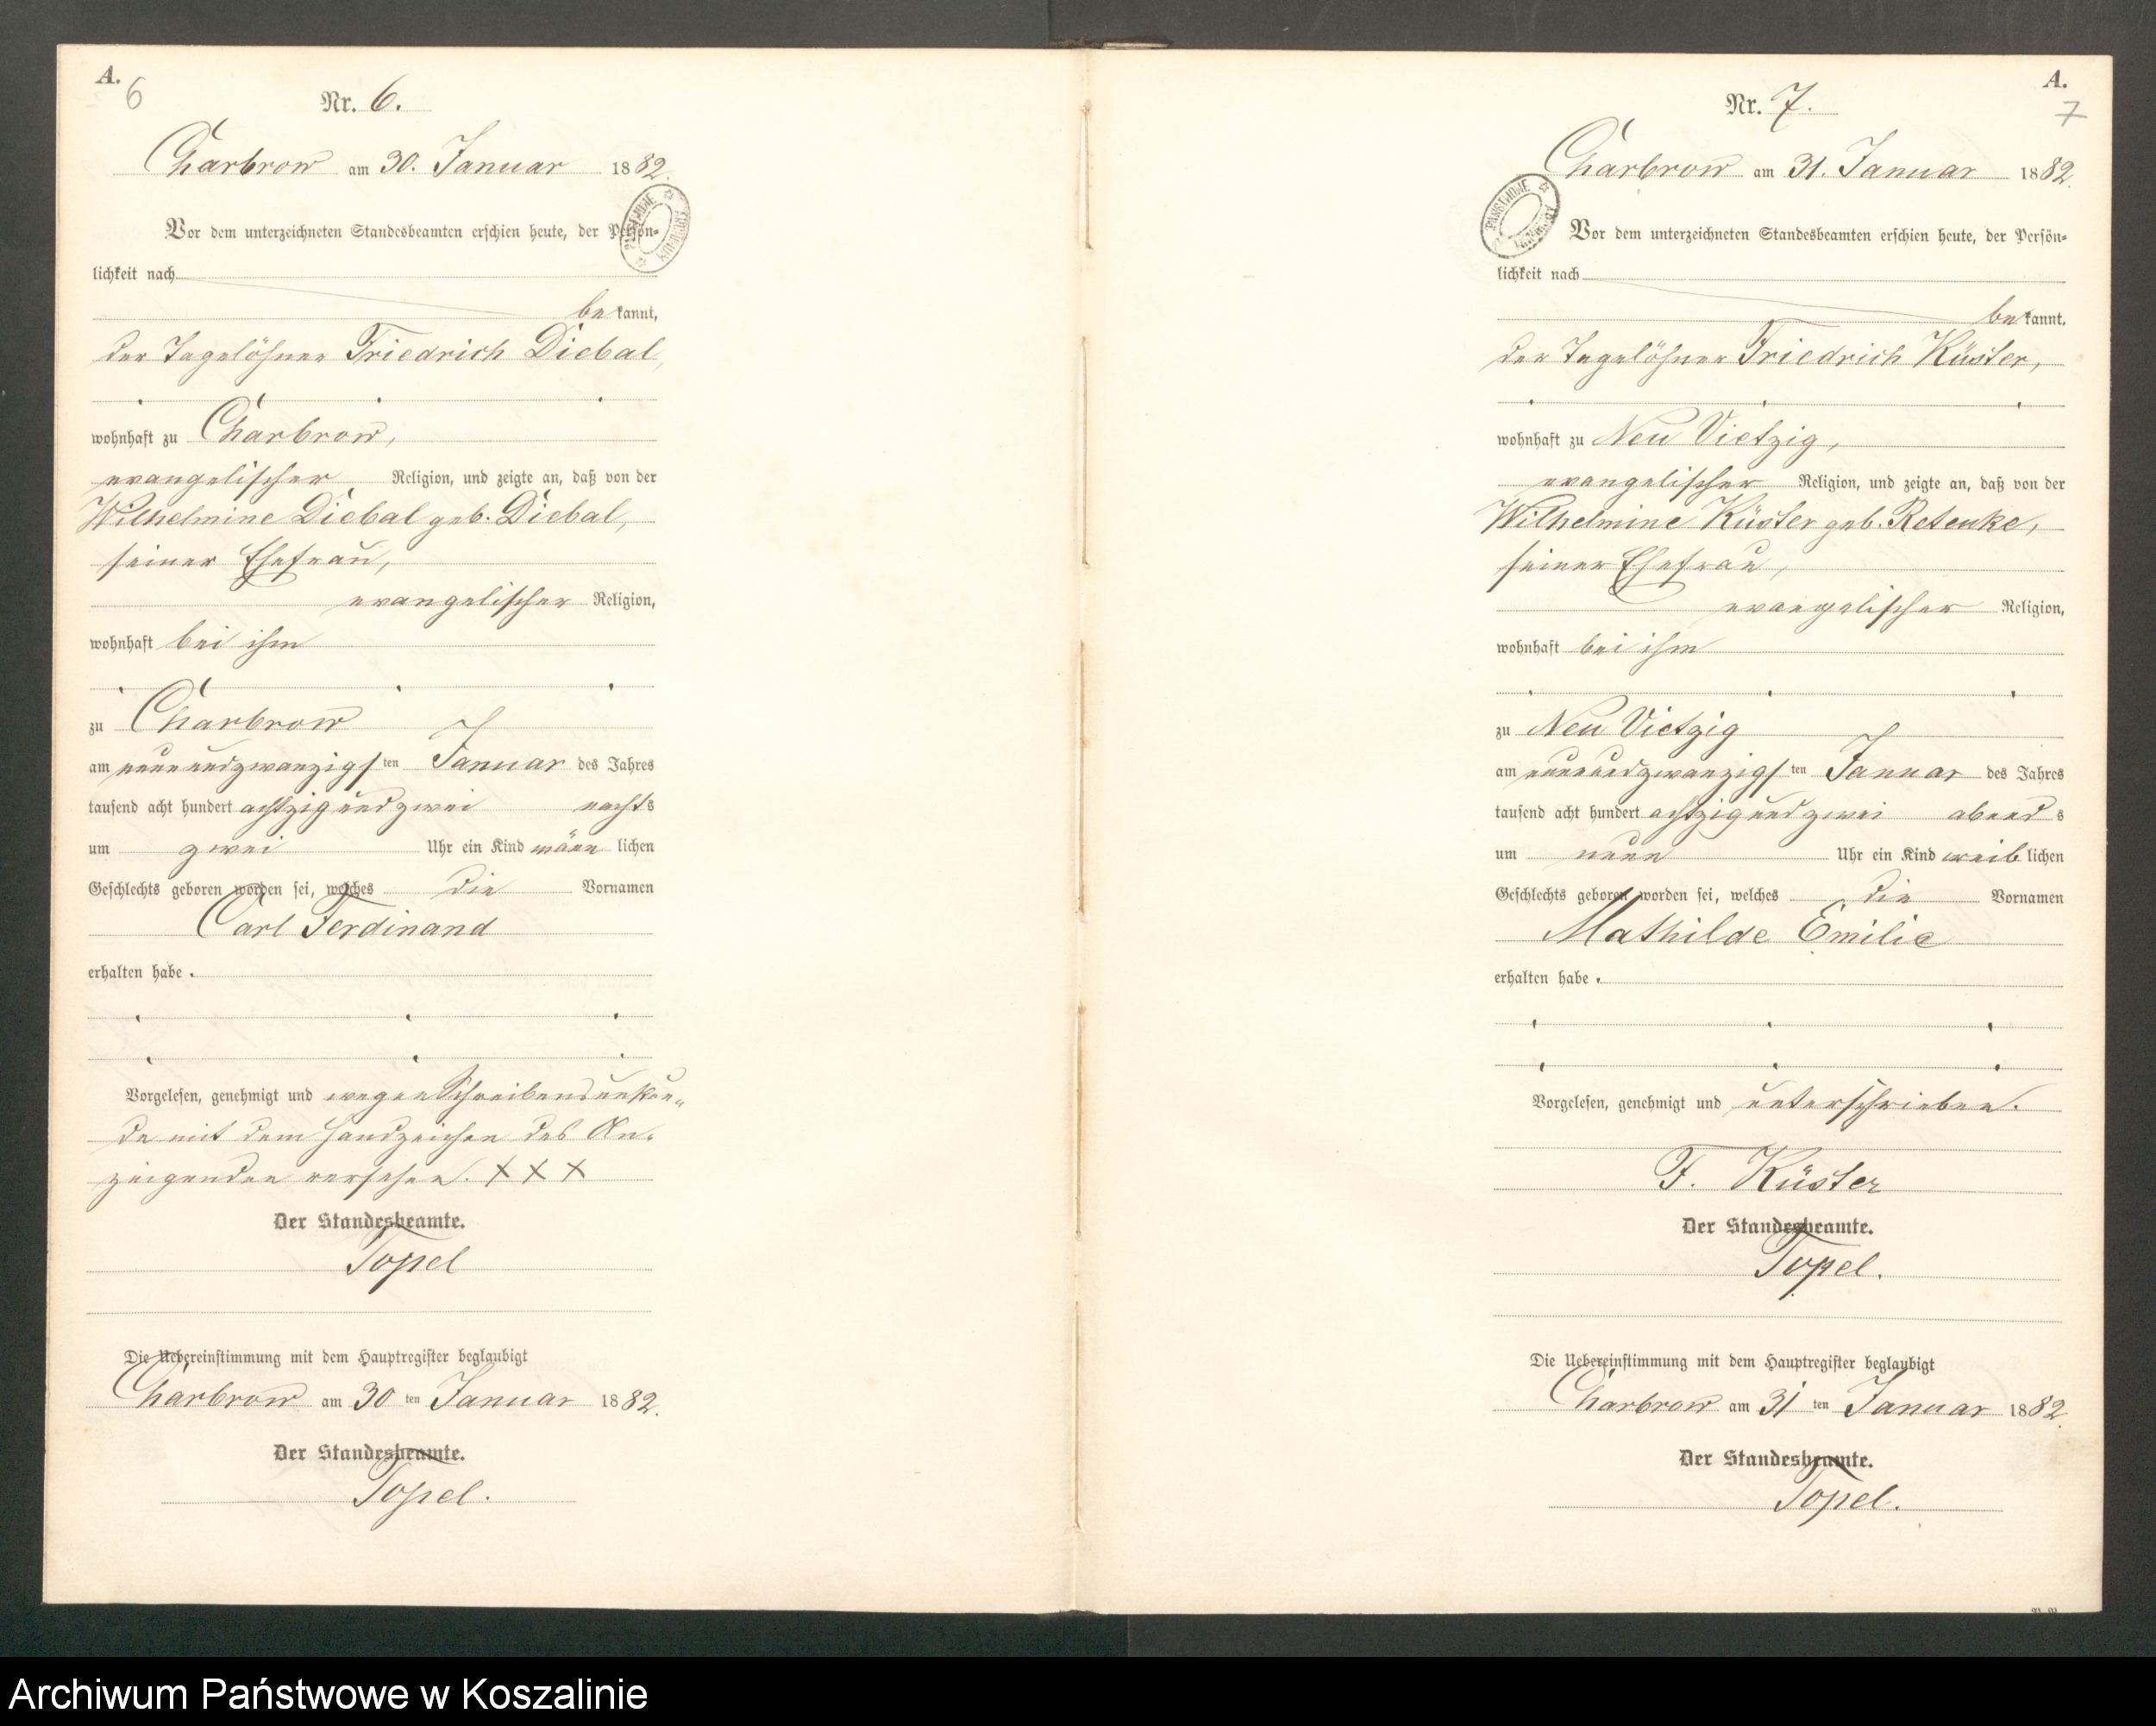 A.
6
Nr. 6.
Charbrow am 30. Januar 1882.
Vor dem unterzeichneten Standesbeamten erschien heute, der Persön-
lichkeit nach
bekannt,
der Tagelöhner Friedrich Diebal,
wohnhaft zu Charbrow,
evangelischer Religion, und zeigte an, daß von der
Wilhelmine Diebal geb. Diebal,
seiner Ehefrau,
evangelischer Religion,
wohnhaft bei ihm
zu Charbrow
am neunundzwanzigsten Januar des Jahres
tausend acht hundert achtzig und zwei nachts
um zwei Uhr ein Kind männlichen
Geschlechts geboren worden sei, welches die Vornamen
Carl Ferdinand
erhalten habe.
Vorgelesen, genehmigt und wegen Schreibensunkun-
de mit dem Handzeichen des An-
zeigenden versehen. XXX
Der Standesbeamte.
Topel
Die Uebereinstimmung mit dem Hauptregister beglaubigt
Charbrow am 30 ten Januar 1882.
Der Standesbeamte.
Topel.
A.
7
Nr. 7.
Charbrow am 31. Januar 1882.
PAŃSTWOWE
Vor dem unterzeichneten Standesbeamten erschien heute, der Persön-
lichkeit nach
bekannt,
der Tagelöhner Friedrich Küster,
wohnhaft zu Neu Vietzig,
evangelischer Religion, und zeigte an, daß von der
Wilhelmine Küster geb. Retenke,
seiner Ehefrau,
evangelischer Religion,
wohnhaft bei ihm
zu Neu Vietzig
am neunundzwanzigsten Januar des Jahres
tausend acht hundert achtzig und zwei abends
um neun Uhr ein Kind weiblichen
Geschlechts geboren worden sei, welches die Vornamen
Mathilde Emilie
erhalten habe.
Vorgelesen, genehmigt und unterschrieben.
F. Küster
Der Standesbeamte.
Topel.
Die Uebereinstimmung mit dem Hauptregister beglaubigt
Charbrow am 31 ten Januar 1882.
Der Standesbeamte.
Topel.
Archiwum Państwowe w Koszalinie